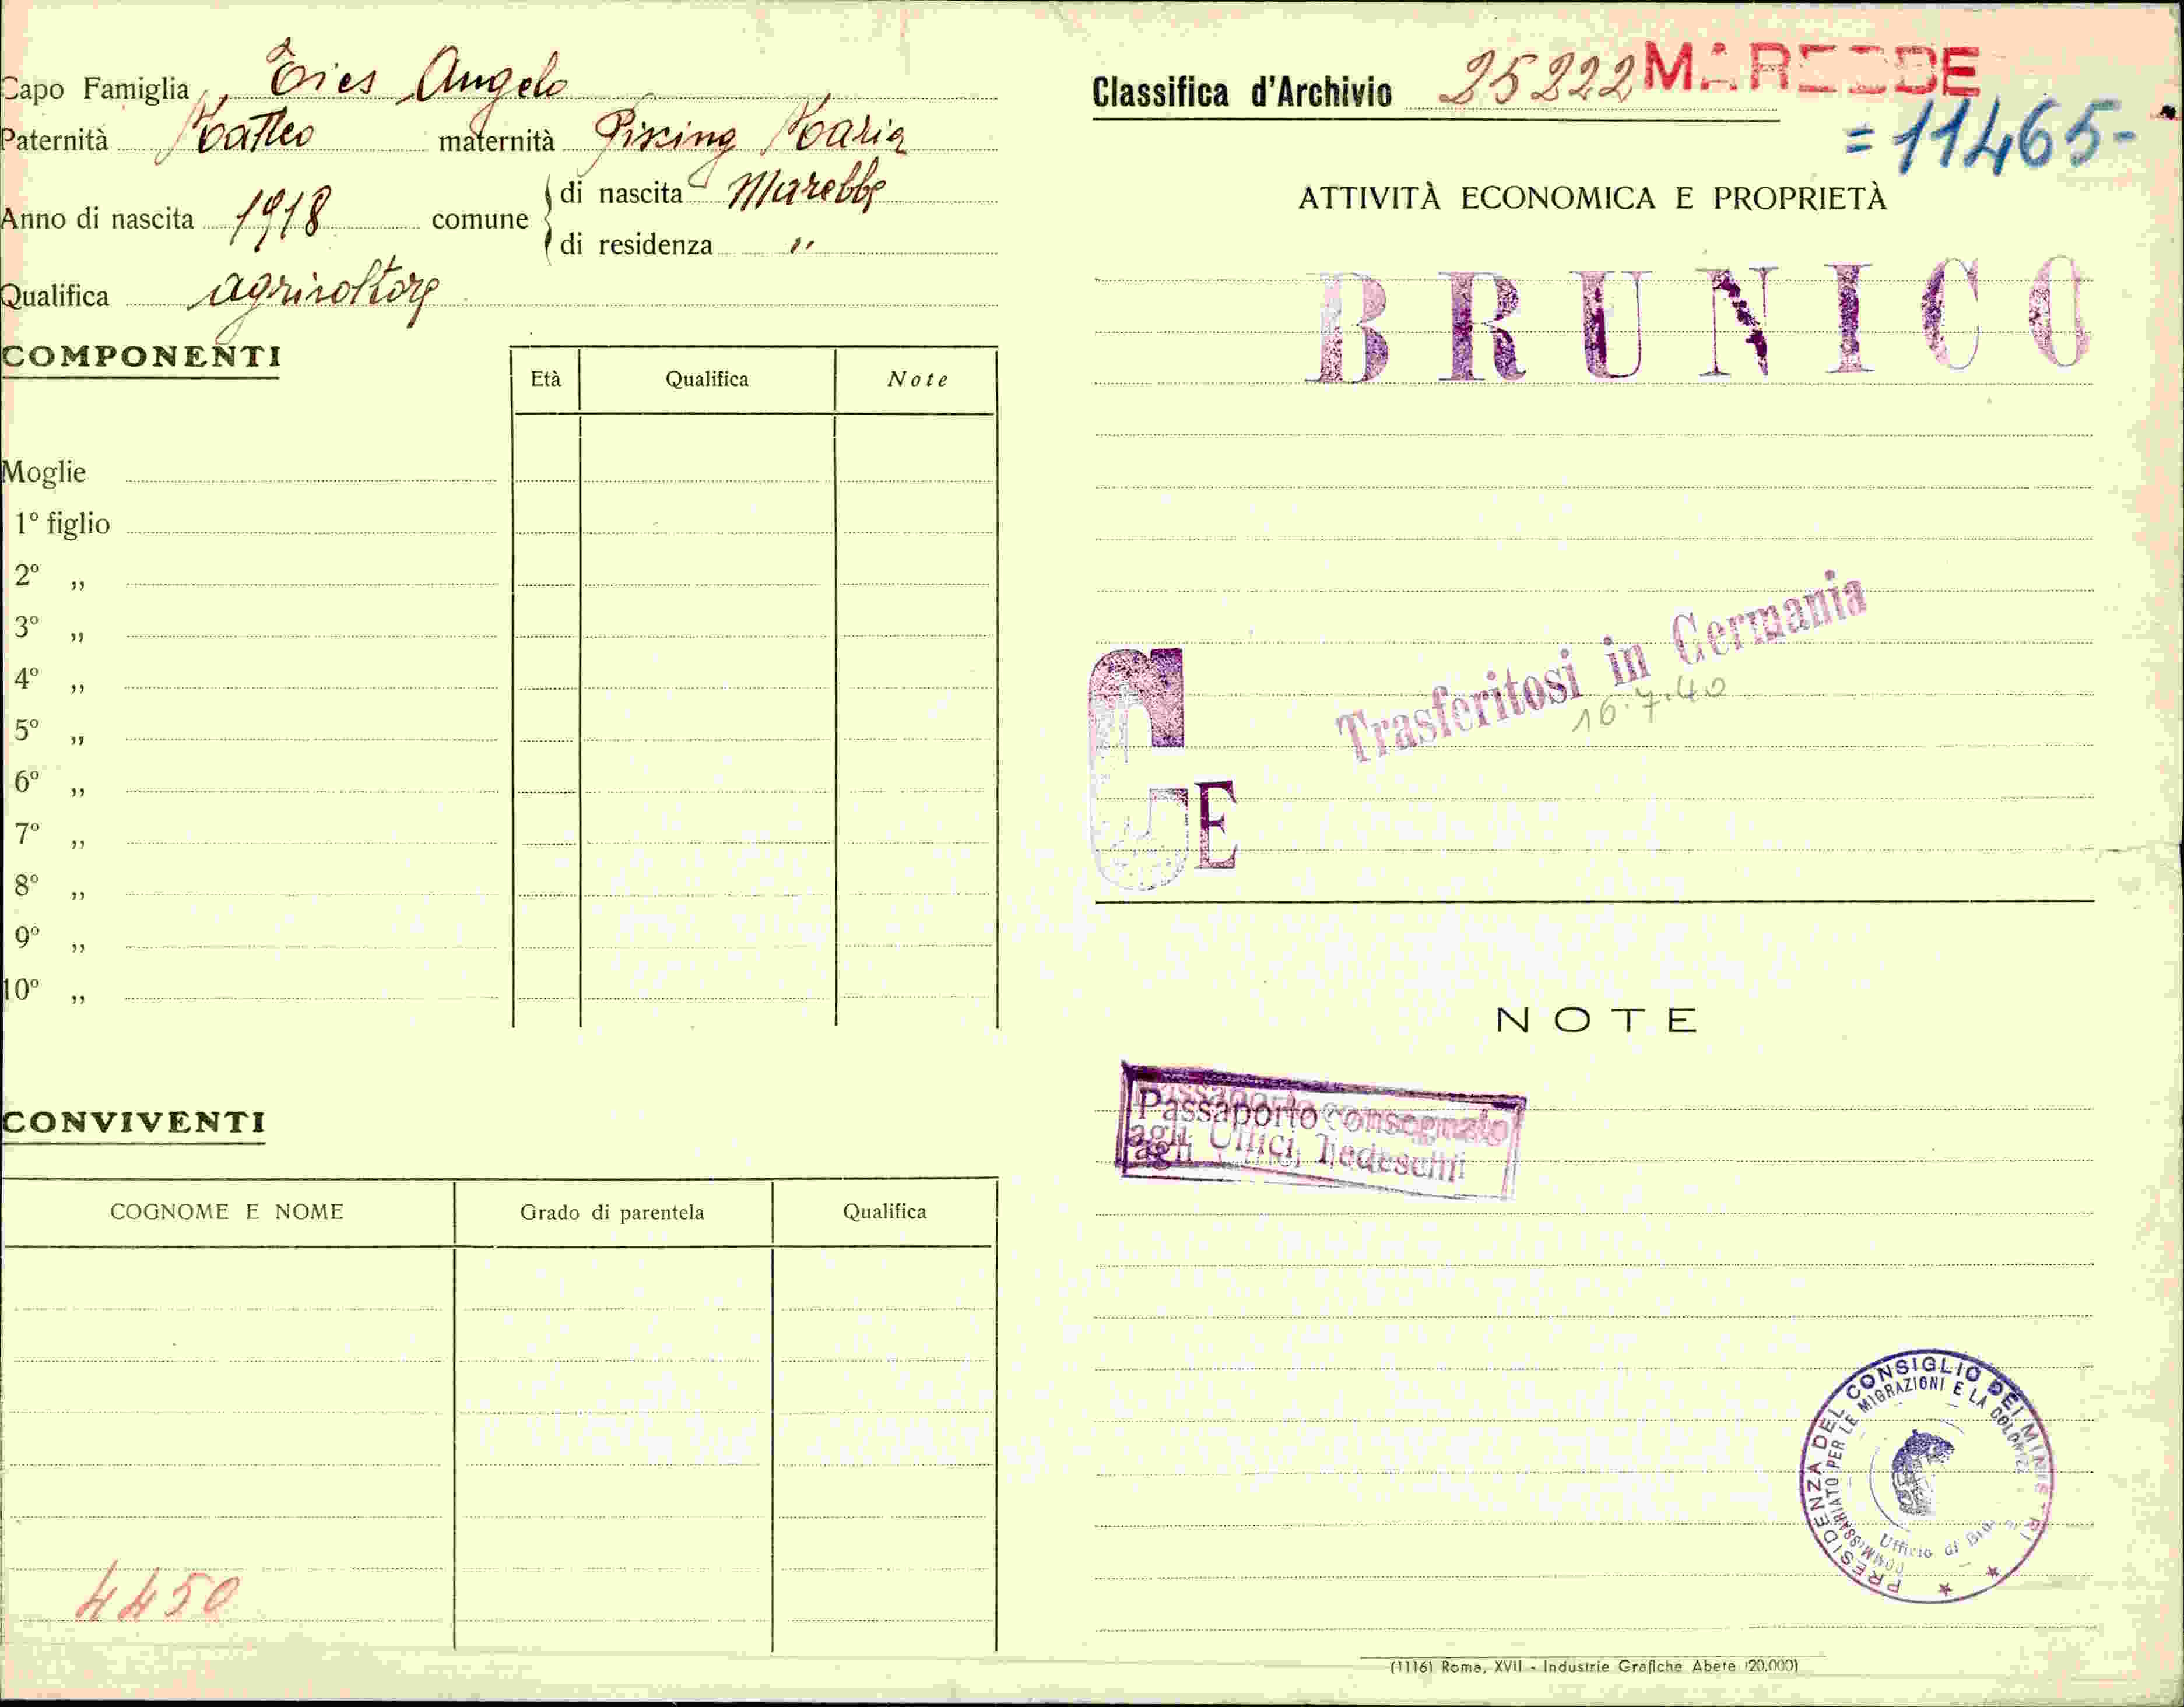 Capo Famiglia Eries Angelo
Paternità Matteo maternità Pixing Maria
Anno di nascita 1918 comune di nascita Marebbe
di residenza "
Qualifica agricoltore
COMPONENTI
Età Qualifica Note
Moglie
1º figlio
2º „
3º „
4º „
5º „
6º „
7º „
8º „
9º „
10º „
CONVIVENTI
COGNOME E NOME Grado di parentela Qualifica
4450
Classifica d'Archivio 25222 MAREBBE
=11465-
ATTIVITÀ ECONOMICA E PROPRIETÀ
BRUNICO
Trasferitosi in Germania
16.7.40
G E
NOTE
Passaporto consegnato
agli Uffici Tedeschi
PRESIDENZA DEL CONSIGLIO DEI MINISTRI
COMMISSARIATO PER LE MIGRAZIONI E LA COLONIZZ
Ufficio di
(11161 Roma, XVII - Industrie Grafiche Abete (20.000)